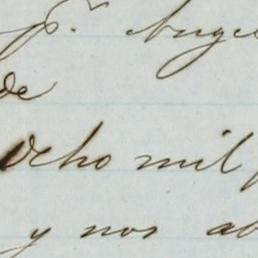 pr. Ange
de
Ocho mil
y nos ab